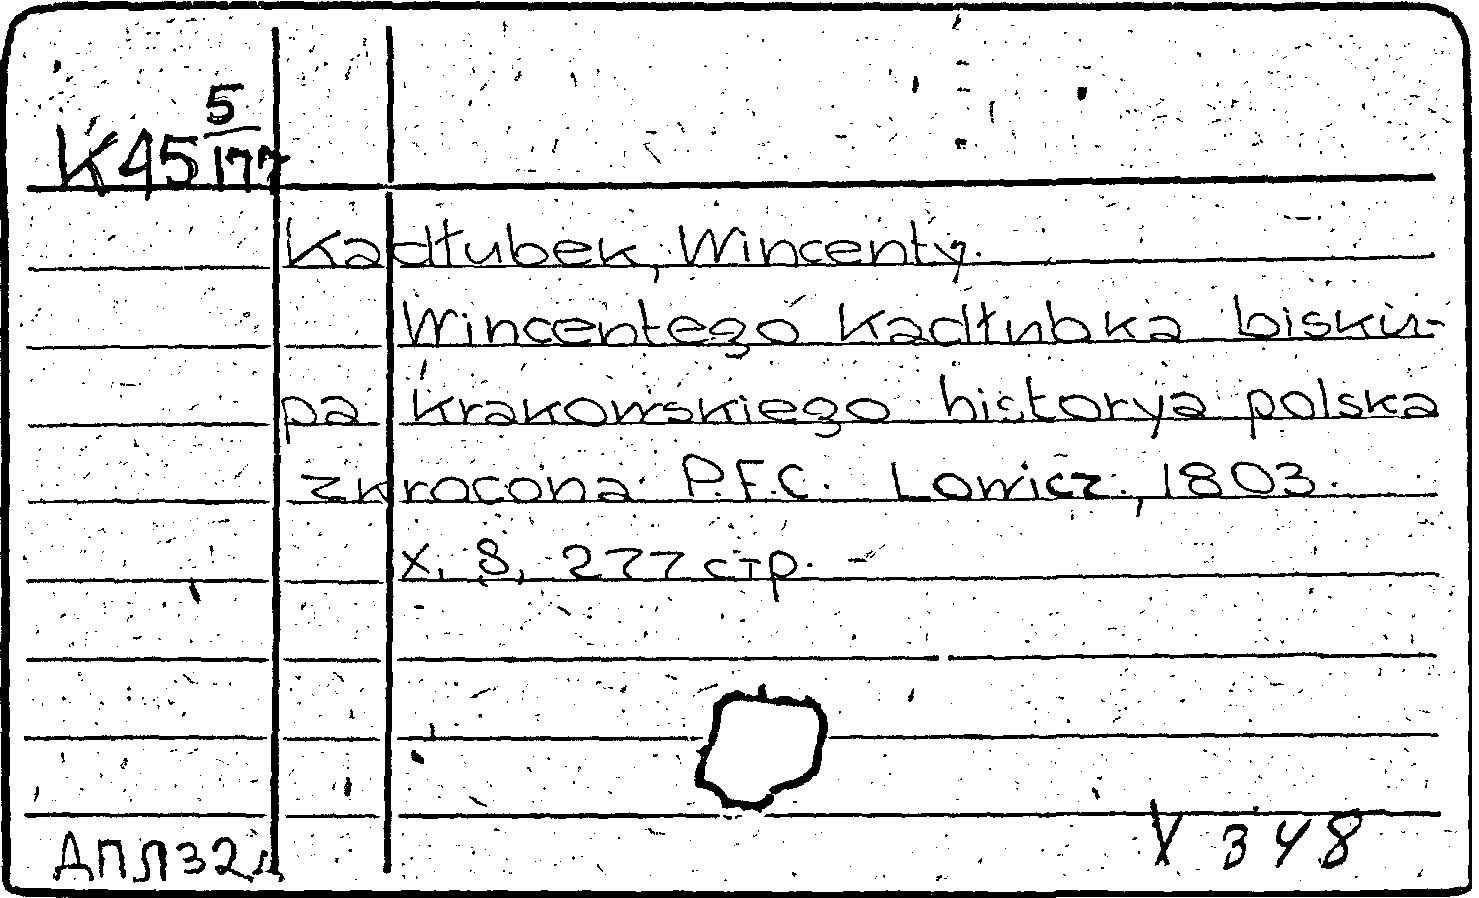 K45 5/177
Kadłubek, Wincenty.
Wincentego Kadłubka bisku-
pa krakowskiego historya polska
zkrocona P.F.C. Lowicz, 1803.
X, 8, 277 стр. -
ДПЛ32д
X 348